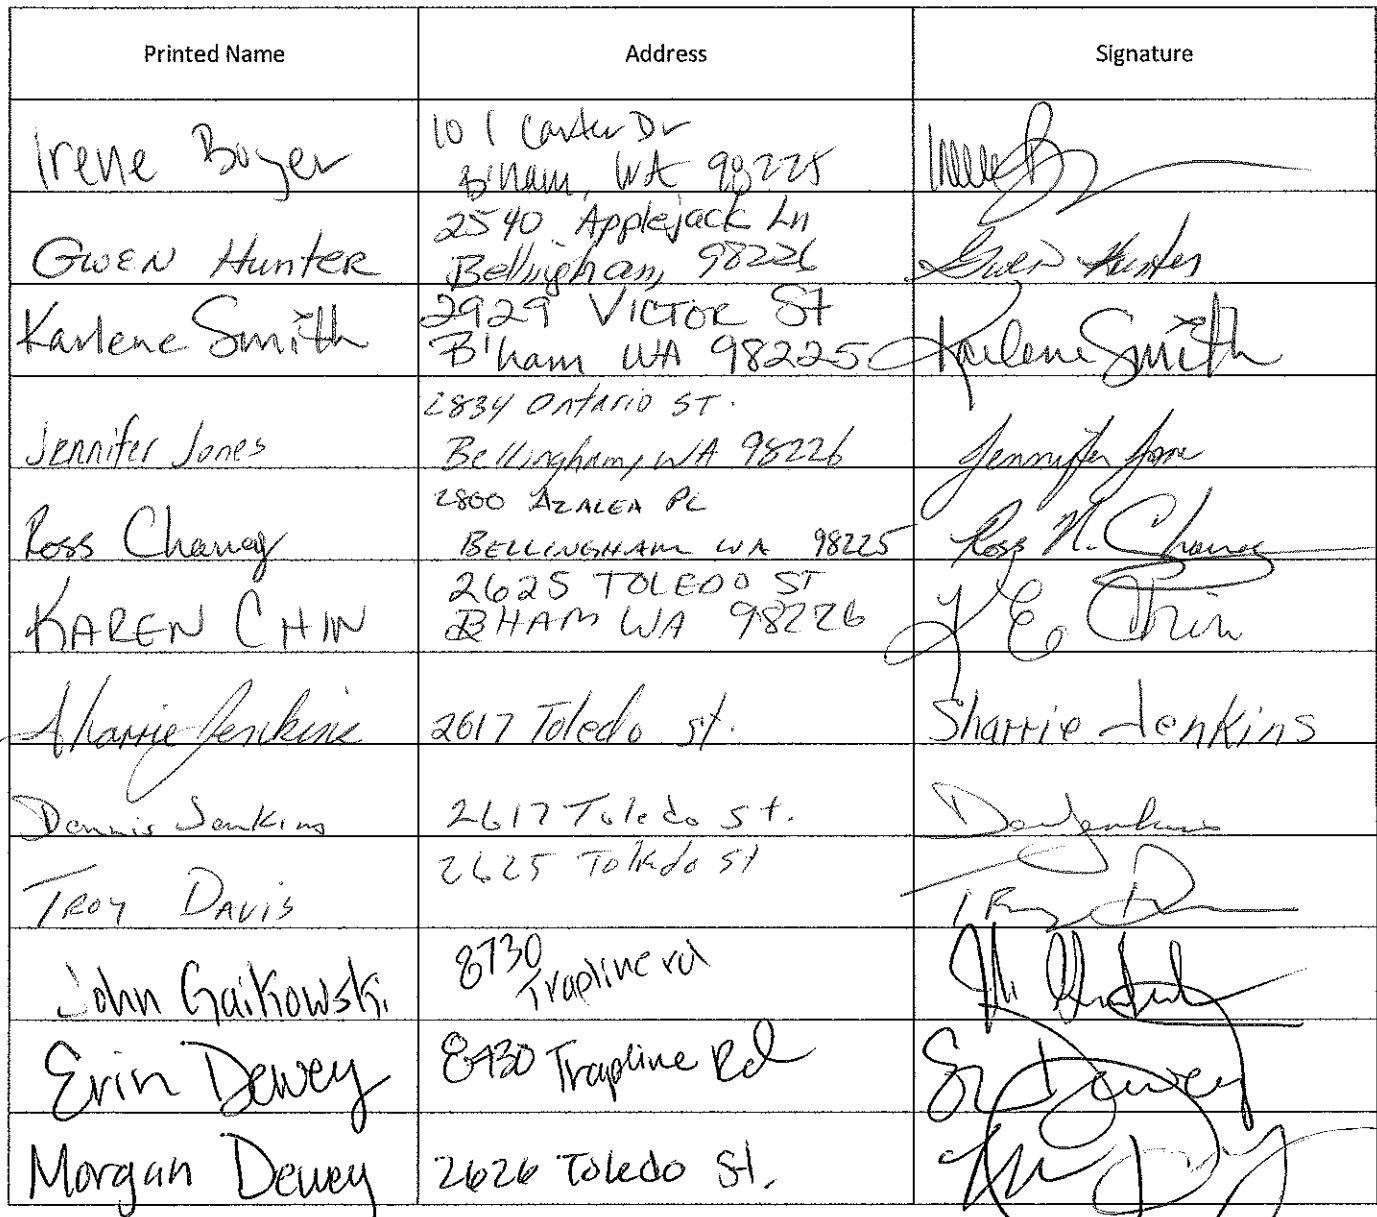 Printed Name Address Signature
Irene Boyer
101 Carter Dr
B'ham, WA 98225
Gwen Hunter
2540 Applejack Ln
Bellingham, 98226
Gwen Hunter
Karlene Smith
2929 Victor St
B'ham WA 98225
Karlene Smith
Jennifer Jones
2834 Ontario ST.
Bellingham, WA 98226
Jennifer Jone
Ross Chaney
2800 Azalea PL
Bellingham WA 98225
Ross N. Chaney
Karen Chin
2625 Toledo St
BHAM WA 98226
K E Chin
Sharrie Jenkins
2617 Toledo st.
Sharrie Jenkins
Dennis Jenkins
2617 Toledo St.
Troy Davis
2625 Toledo St
John Gaikowski
8730
Trapline rd
Erin Dewey
8730 Trapline Rd
Dewey
Morgan Dewey
2626 Toledo St.